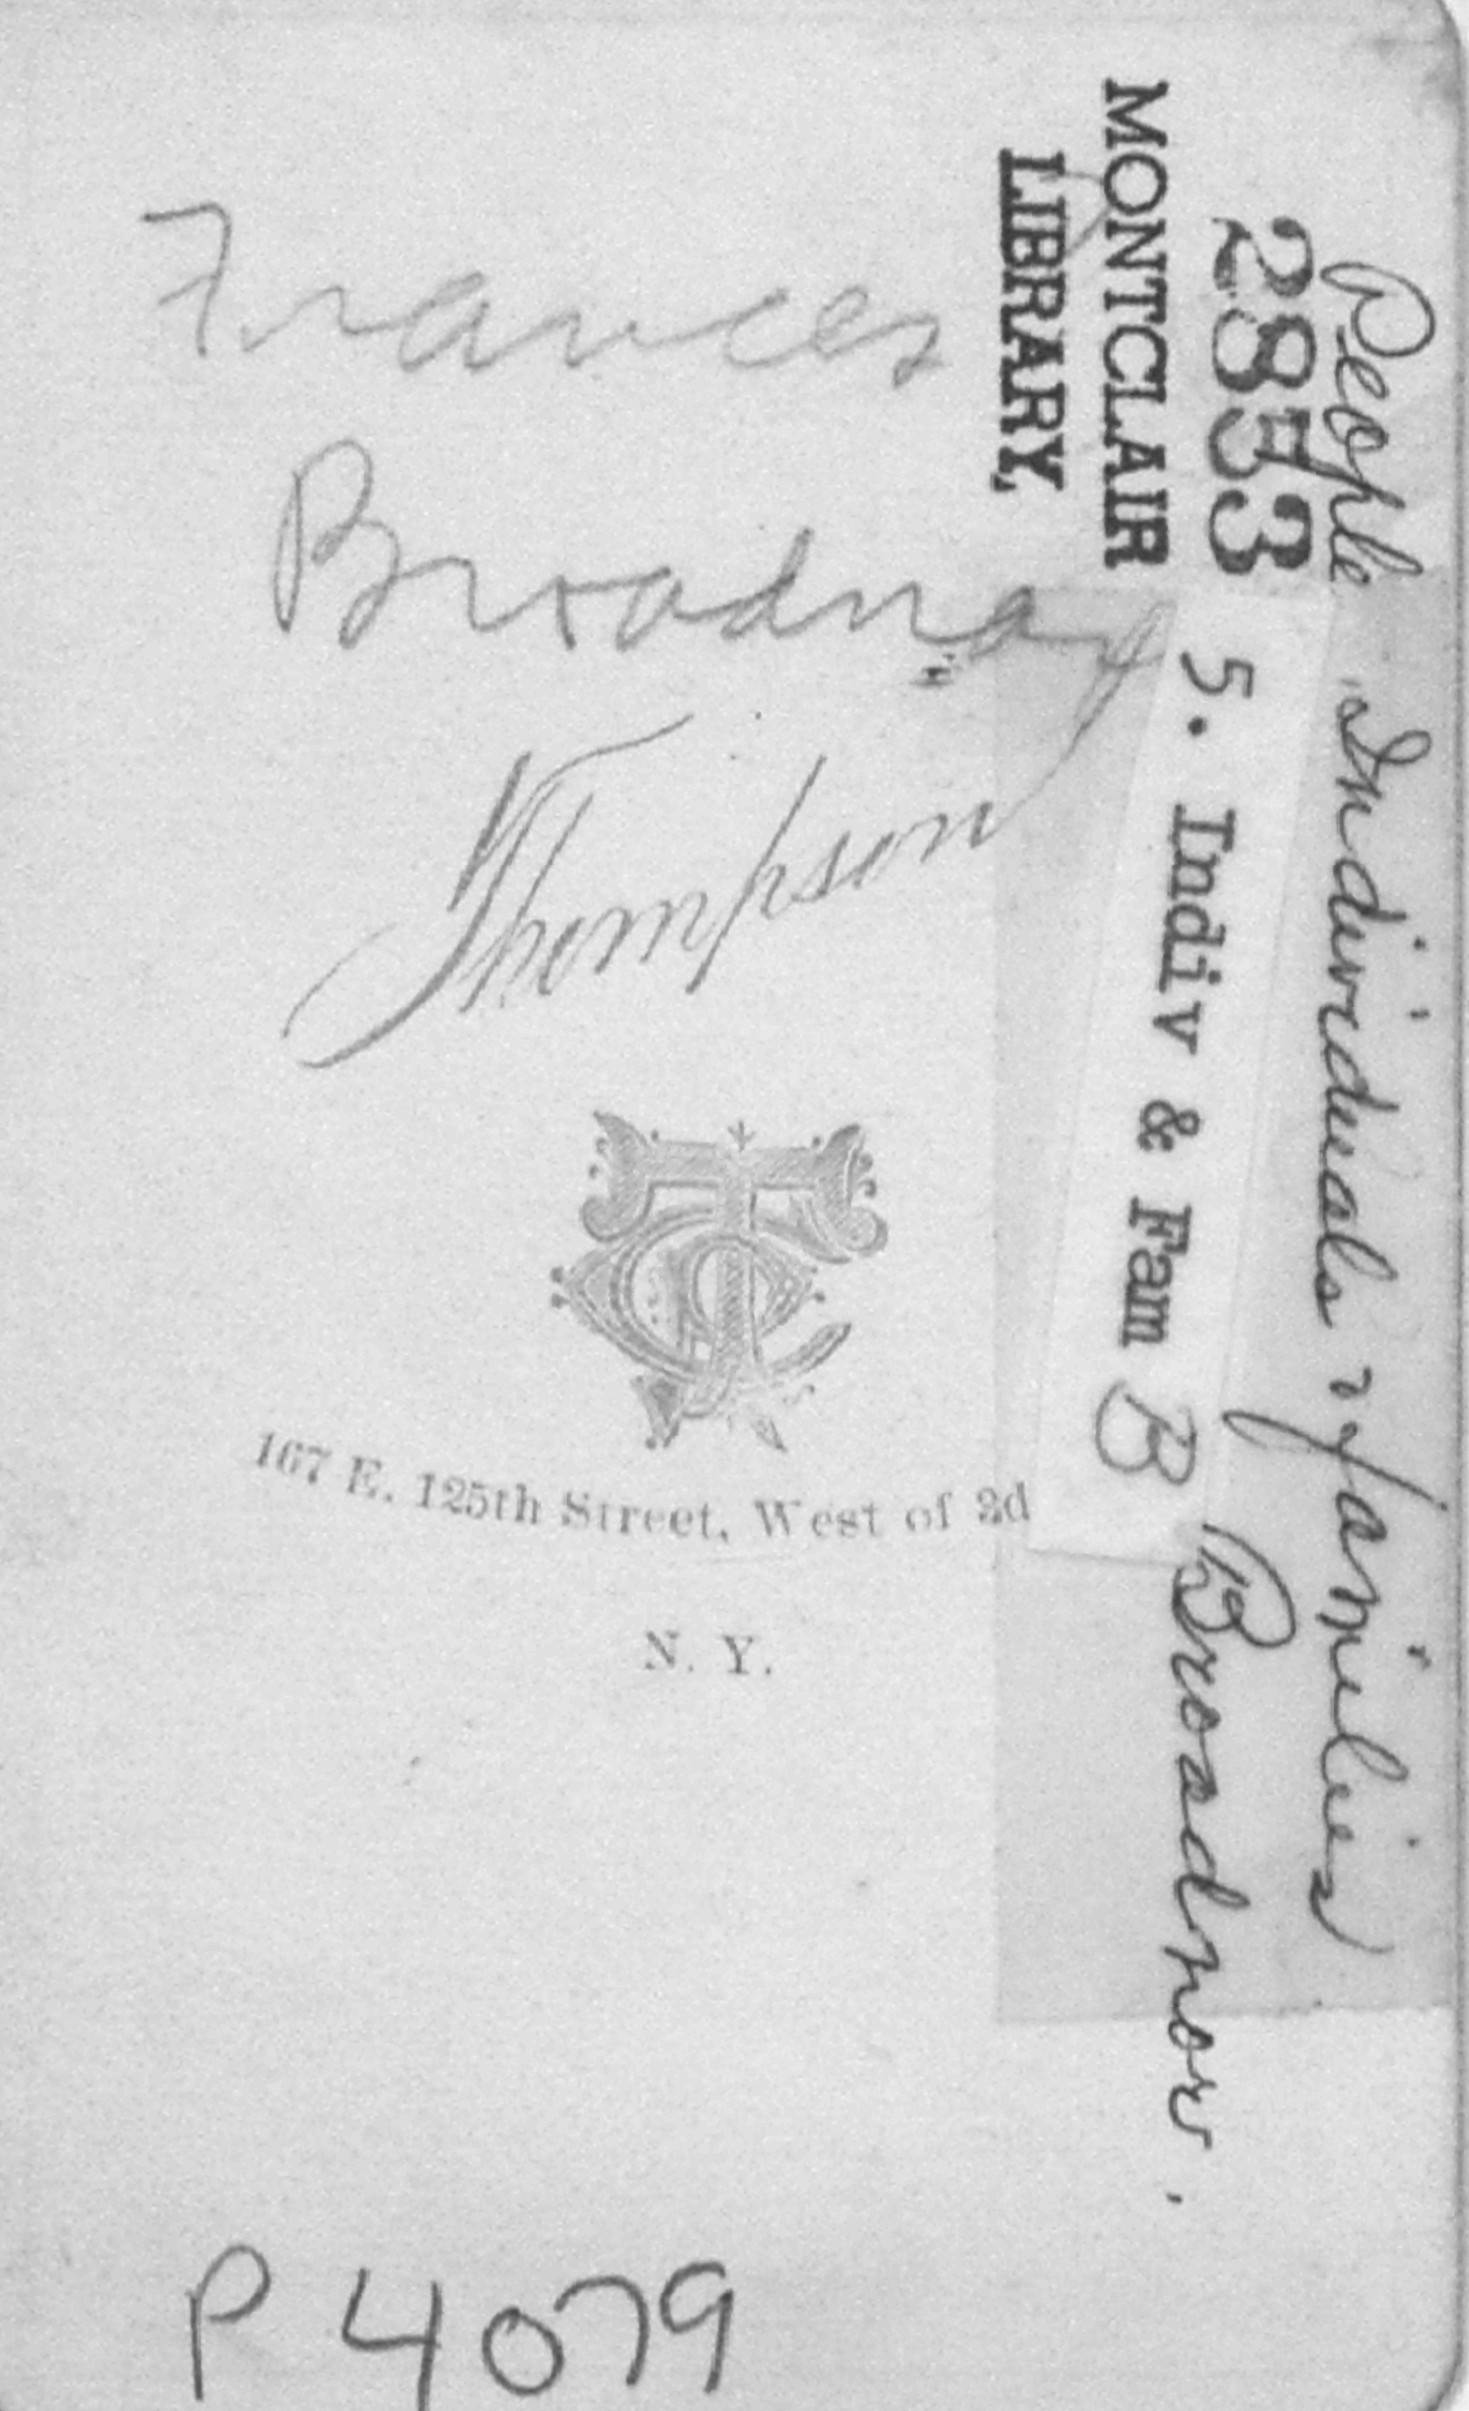 Frances
Broadnax
Thompson
167 E. 125th Street, West of 3d
N. Y.
P 4079
People Individuals & families
2853
Broadnax.
5. Indiv & Fam B
MONTCLAIR
LIBRARY,